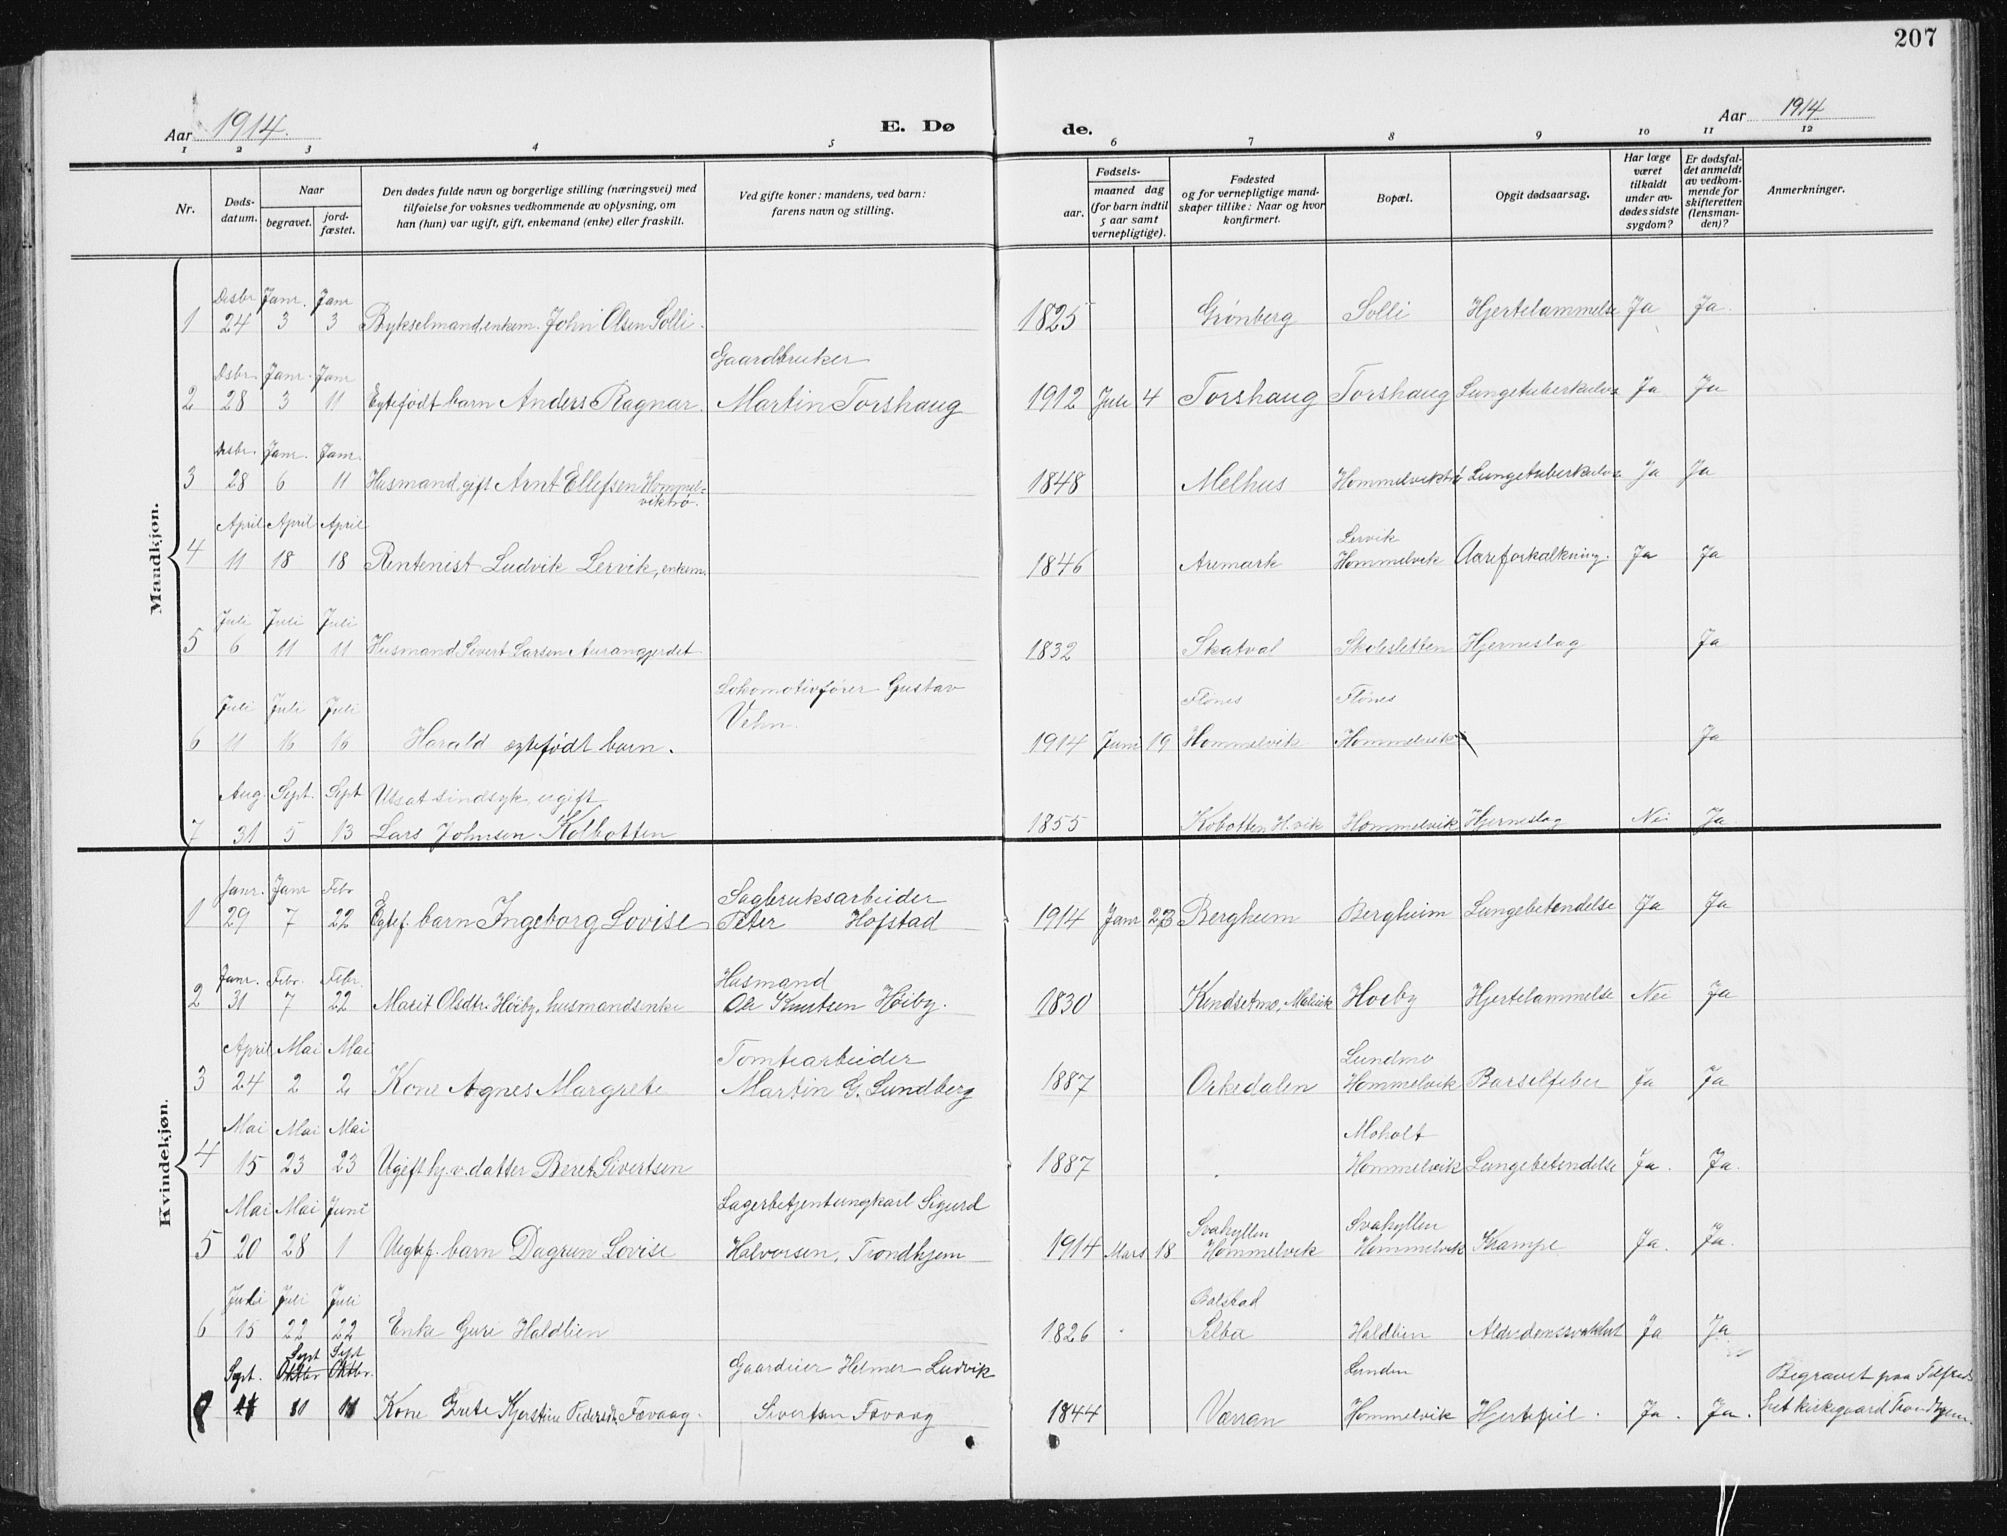 207
Aar 1914. E. Dø de. Aar 1914
1 2 3 4 5 6 7 8 9 10 11 12
Nr.
Døds-
datum.
Naar
begravet.
jord-
fæstet.
Den dødes fulde navn og borgerlige stilling (næringsvei) med
tilføielse for voksnes vedkommende av oplysning, om
han (hun) var ugift, gift, enkemand (enke) eller fraskilt.
Ved gifte koner: mandens, ved barn:
farens navn og stilling.
Fødsels-
aar.
maaned dag
(for barn indtil
5 aar samt
vernepligtige).
Fødested
og for vernepligtige mand-
skaper tillike: Naar og hvor
konfirmert.
Bopæl.
Opgit dødsaarsag.
Har læge
været
tilkaldt
under av-
dødes sidste
sygdom?
Er dødsfal-
det anmeldt
av vedkom-
mende for
skifteretten
(lensman-
den)?
Anmerkninger.
Mandkjøn.
Desbr. Janr. Janr
1 24 3 3 Bykselmand, enkem. John Olsen Solli. 1825 Grønberg Solli Hjertelammelse Ja Ja.
Gaardbruker
Dsbr. Janr. Janr
2 28 3 11 Egtefødt barn Anders Ragnar. Martin Torshaug 1912 Juli 4 Torshaug Torshaug Lungetuberkulose Ja Ja
Desbr. Janr. Janr.
3 28 6 11 Husmand gift Arnt Ellefsen Hommel-
viktrø. 1848 Melhus Hommelviktrø Lungetuberkulose Ja Ja
April April April Lervik
4 11 18 18 Rentenist Ludvik Lervik, enkem. 1846 Aremark Hommelvik Aareforkalkning. Ja Ja
Juli Juli Juli
5 6 11 11 Husmand Sivert Larsen Aurangjerdet 1832 Skatval Skolesletten Hjerneslag Ja
Juli Juli Juli Lokomotivfører Gustav Flønes Flønes
Vehn.
6 11 16 16 Harald egtefødt barn. 1914 Juni 19 Hommelvik Hommelvik Ja
Aug. Sept. Sept Utsat sindsyk, ugift
7 31 5 13 Lars Johnsen Kolbotten 1855 Kobotten H.vik Hommelvik Hjerneslag Nei Ja
Kvindekjøn.
Janr. Janr Febr Sagbruksarbeider
1 29 7 22 Egtef. barn Ingeborg Lovise Peter Hofstad 1914 Janr 23 Bergheim Bergheim Lungebetendelse Ja Ja
Janr. Febr. Febr. Husmand
2 31 7 22 Marit Olsdtr. Høiby, husmandsenke Ole Knutsen Høiby. 1830 Kindsetmo, Malvik Hoeby Hjertelammelse Nei Ja
April Mai Mai Tomtearbeider Lundmo
3 24 2 2 Kone Agnes Margrete Martin G. Lundberg 1887 Orkedalen Hommelvik Barselfeber Ja Ja
Mai Mai Mai Moholt
4 15 23 23 Ugift hj.v. datter Beret Sivertsen 1887 Hommelvik Lungebetendelse Ja. Ja.
Mai Mai Juni Lagerbetjentungkarl Sigurd Svahyllen Svahyllen
5 20 28 1 Uegtef. barn Dagrun Lovise Halvorsen, Trondhjem 1914 Mars 18 Hommelvik Hommelvik Krampe Ja. Ja.
Juli Juli Juli Balstad
6 15 22 22 Enke Guri Haldlien 1826 Selbu Haldlien Alderdomssvakhet Ja Ja
Sept Sept
Sept. Oktbr Oktbr. Gaardeier Helmer Ludvik Lunden Begravet paa Tilfreds
11 11 Kone Grete Kjerstine Pedersdtr. Fævaag. Sivertsen Fævaag 1844 Værran Hommelvik Hjertefeil. Ja. Ja. het kirkegaard Trondhjem.